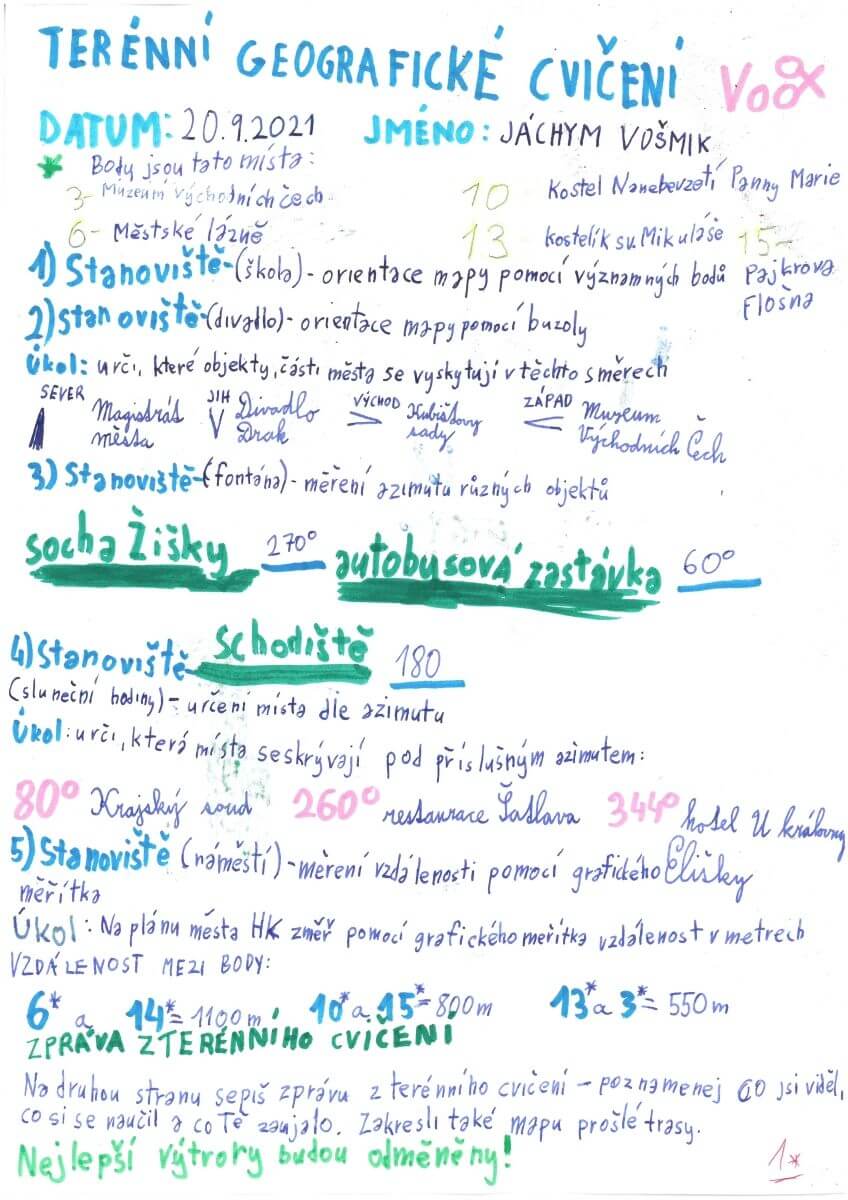 TERÉNNÍ GEOGRAFICKÉ CVIČENÍ
DATUM: 20.9.2021 JMÉNO: JÁCHYM VOŠMIK
* Body jsou tato místa:
3- Múzeum východních čech 10 Kostel Nanebevzetí Panny Marie
6- Městské lázně 13 kostelík sv. Mikuláše 15- Pajkrova Flošna
1) Stanoviště-(škola)- orientace mapy pomocí významných bodů
2) Stanoviště-(divadlo)- orientace mapy pomocí buzoly
Úkol: urči, které objekty, části města se vyskytují v těchto směrech
SEVER Magistrát města JIH Divadlo Drak VÝCHOD Žižkovy sady ZÁPAD Muzeum Východních Čech
3) Stanoviště-(fontána)- měření azimutu různých objektů
socha Žižky 270° autobusová zastávka 60°
Schodiště 180
4) Stanoviště-
(sluneční hodiny)- určení místa dle azimutu
Úkol: urči, která místa se skrývají pod příslušným azimutem:
80° Krajský soud 260° restaurace Šatlava 344° hotel U královny Elišky
5) Stanoviště (náměstí)-měření vzdálenosti pomocí grafického
měřítka
Úkol: Na plánu města HK změř pomocí grafického meřítka vzdálenost v metrech
VZDÁLENOST MEZI BODY:
6* a 14*= 1100 m, 10* a 15*= 800 m 13* a 3*= 550 m
ZPRÁVA Z TERÉNNÍHO CVIČENÍ
Na druhou stranu sepiš zprávu z terénního cvičení - poznamenej co jsi viděl,
co si se naučil a co Tě zaujalo. Zakresli také mapu prošlé trasy.
Nejlepší výtrory budou odměněny!
1*